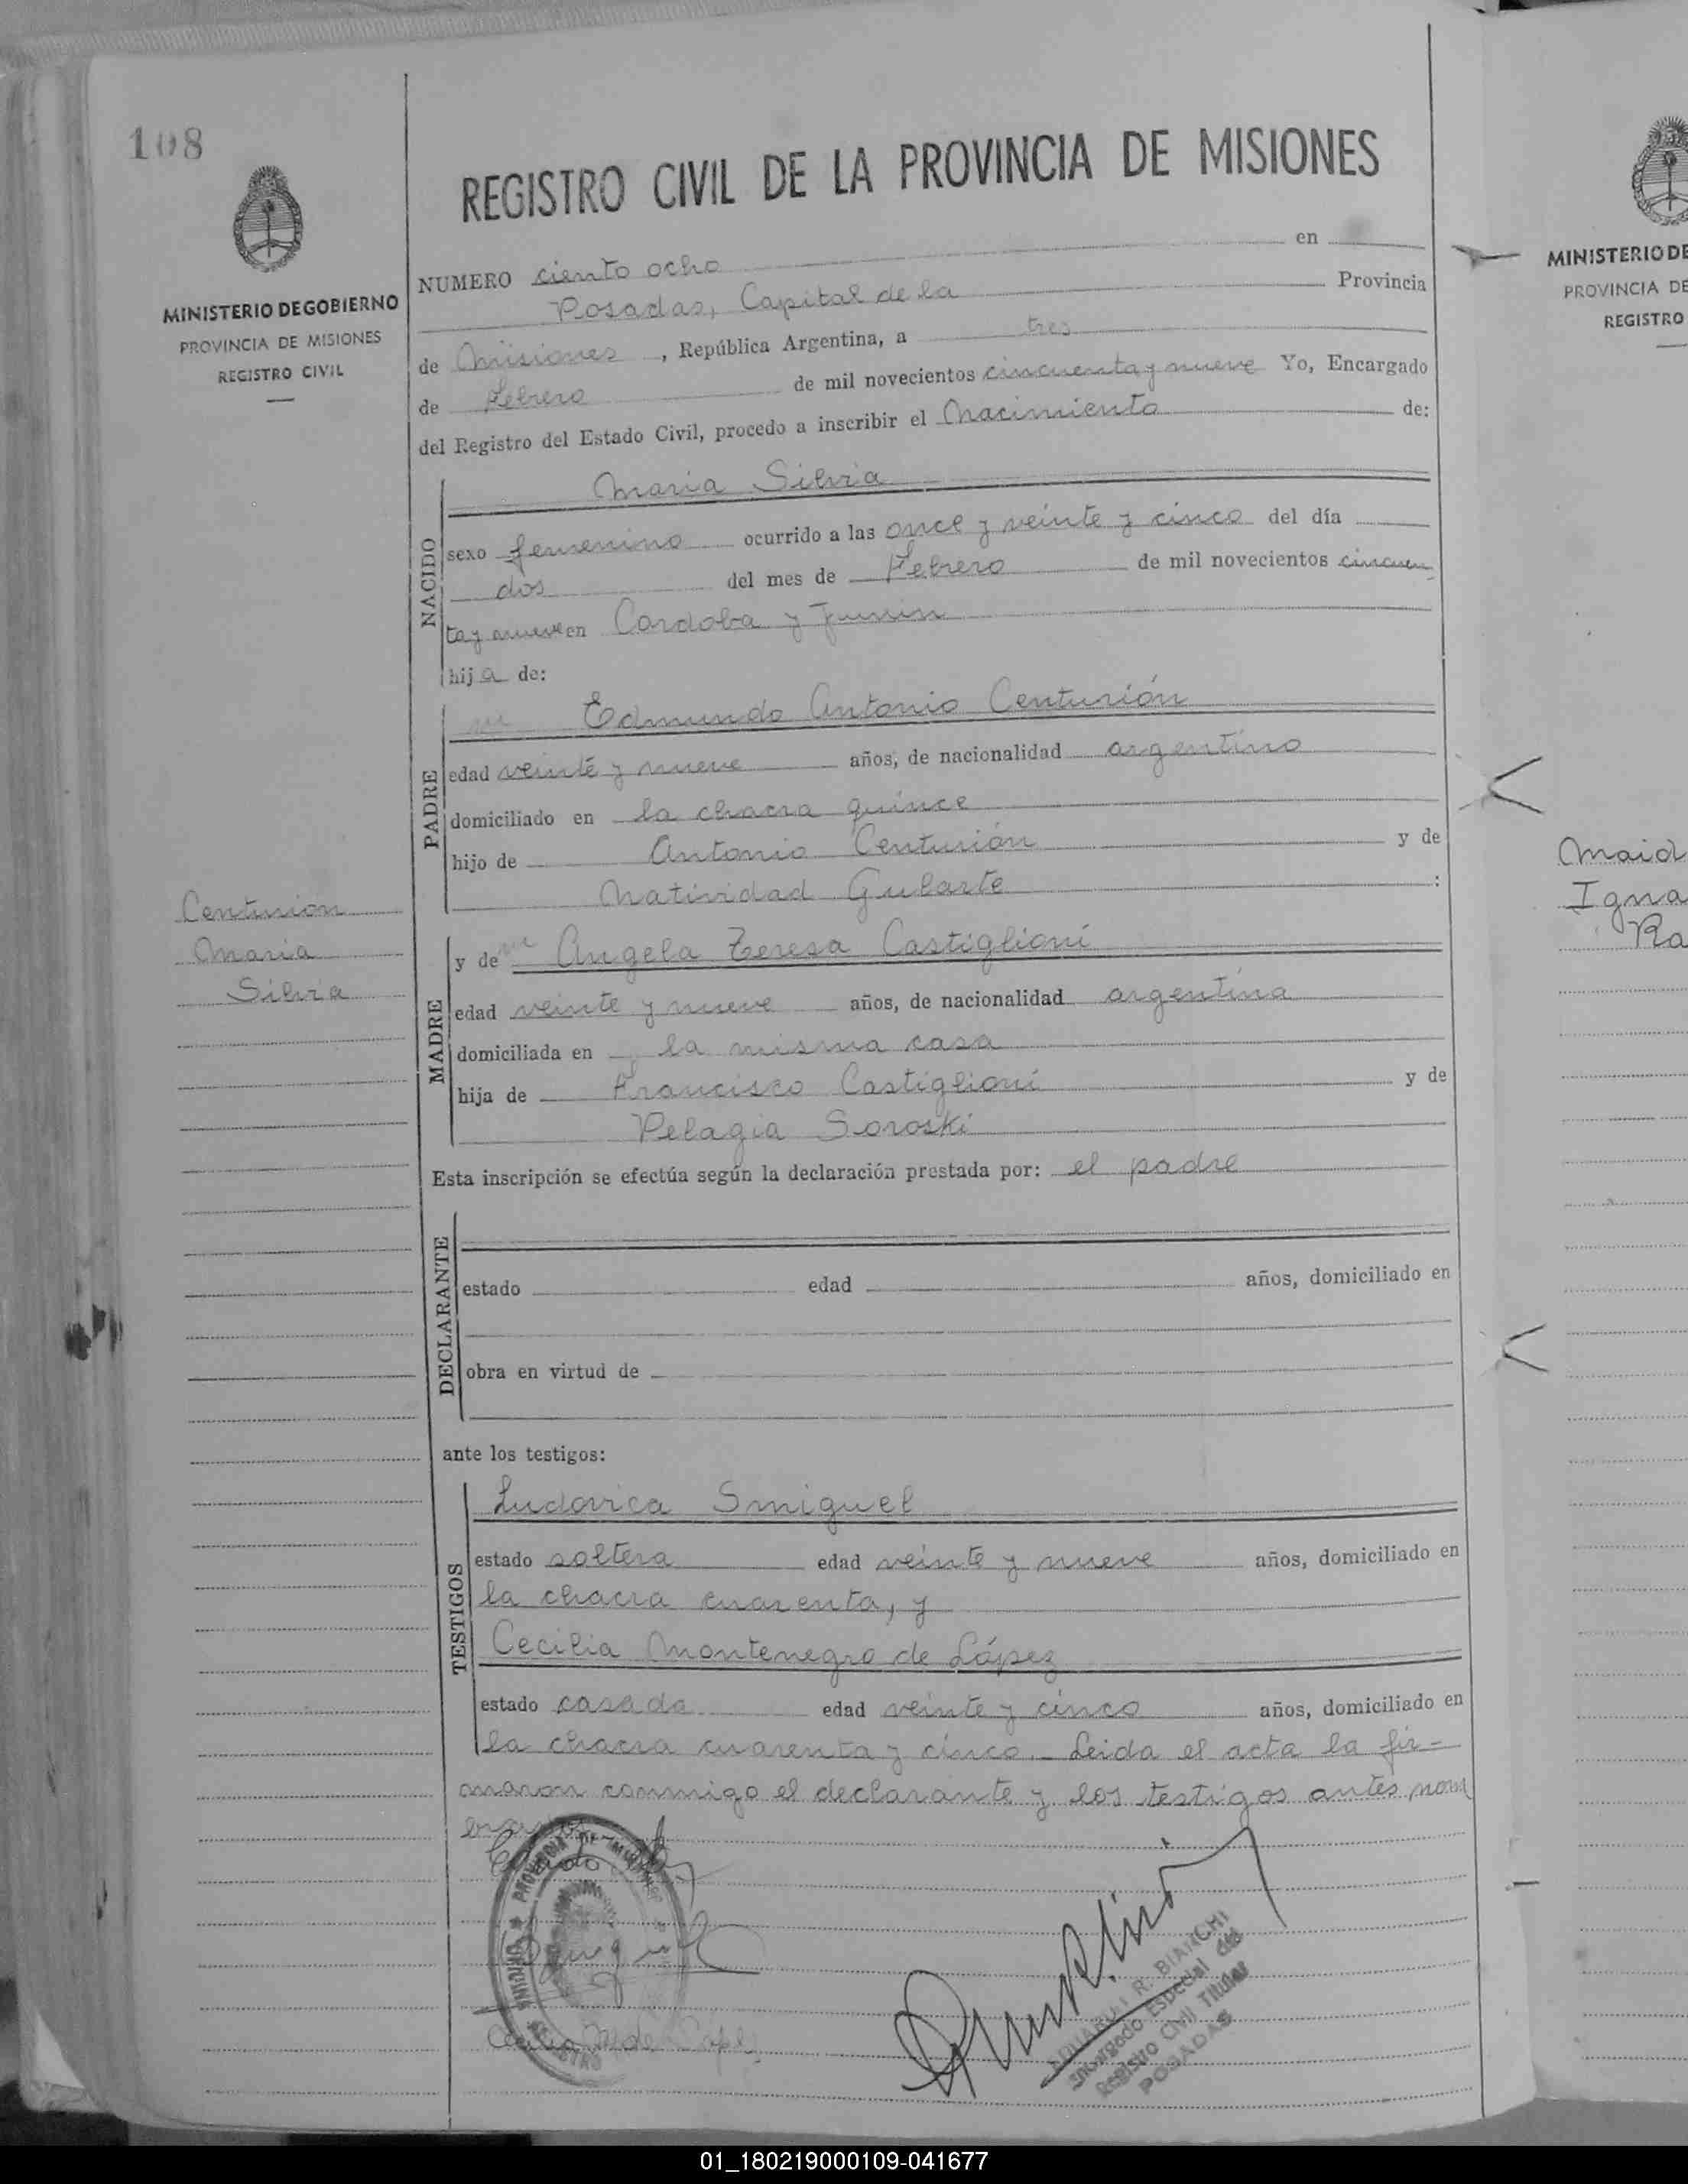 108
REGISTRO CIVIL DE LA PROVINCIA DE MISIONES
MINISTERIO DE GOBIERNO
PROVINCIA DE MISIONES
REGISTRO CIVIL
NUMERO ciento ocho en
Posadas, Capital de la Provincia
de Misiones, República Argentina, a tres
de Febrero de mil novecientos cincuenta y nueve Yo, Encargado
del Registro del Estado Civil, procedo a inscribir el Nacimiento de:
NACIDO
Maria Silvia
sexo femenino ocurrido a las once y veinte y cinco del día
dos del mes de Febrero de mil novecientos cincuen
ta y nueve en Cordoba y Junin
hija de:
PADRE
Edmundo Antonio Centurión
edad veinte y nueve años, de nacionalidad argentino
domiciliado en la chacra quince
hijo de Antonio Centurión y de
Natividad Gularte :
Centurion
Maria
Silvia
MADRE
y de Angela Teresa Castiglioni
edad veinte y nueve años, de nacionalidad argentina
domiciliada en la misma casa
hija de Francisco Castiglioni y de
Pelagia Soroski
Esta inscripción se efectúa según la declaración prestada por: el padre
DECLARANTE
estado edad años, domiciliado en
obra en virtud de
ante los testigos:
TESTIGOS
Ludovica Smiguel
estado soltera edad veinte y nueve años, domiciliado en
la chacra cuarenta, y
Cecilia Montenegro de López
estado casada edad veinte y cinco años, domiciliado en
la chacra cuarenta y cinco. - Leida el acta la fir=
maron conmigo el declarante y los testigos antes nom
brados.-
PROVINCIA DE MISIONES
R. BIANCHI
Encargado Especial del
Registro Civil Titular
POSADAS
MINISTERIO DE
PROVINCIA DE
REGISTRO
Maid
Igna
Ra
01_180219000109-041677